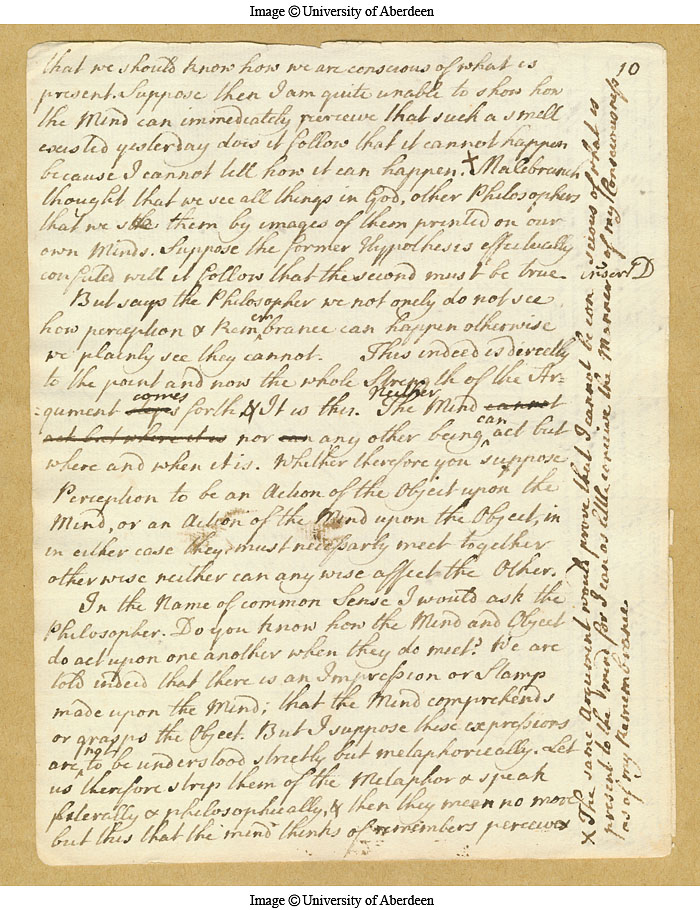 Image © University of Aberdeen
10
that we should know how we are conscious of what is
present. Suppose then I am quite unable to show how
the Mind can immediately perceive that such a smell
existed yesterday does it follow that it cannot happen
because I cannot tell how it can happen. x Malebranch
thought that we see all things in God, other Philosophers
that we see them by images of them printed on our
own Minds. Suppose the former Hypothesis effectually
confuted will it follow that the second must be true. insert D
But says the Philosopher we not onely do not see
how perception & Remembrance can happen otherwise
we plainly see they cannot. This indeed is directly
to the point and now the whole Strength of the Ar-
=gument comes forth, & It is this. Neither The Mind cannot
act but where it is nor can any other being can act but
where and when it is. Whither therefore you suppose
Perception to be an Action of the Object upon the
Mind, or an Action of the Mind upon the Object, in
in either case they must necessarly meet together
otherwise neither can any wise affect the Other.
In the Name of common Sense I would ask the
Philosopher. Do you know how the Mind and Object
do act upon one another when they do meet? We are
told indeed that there is an Impression or Stamp
made upon the Mind; that the Mind comprehends
or grasps the Object. But I suppose these expressions
are not to be understood strictly but metaphorically. Let
us therefore strip them of the Metaphor & speak
literally & philosophically, & then they mean no more
but this that the mind thinks of remembers perceives
x The same Argument would prove that I cannot be conscious of what is
present to the mind for I can as little conceive the Manner of my Consciousness
as of my Remembrance.
Image © University of Aberdeen